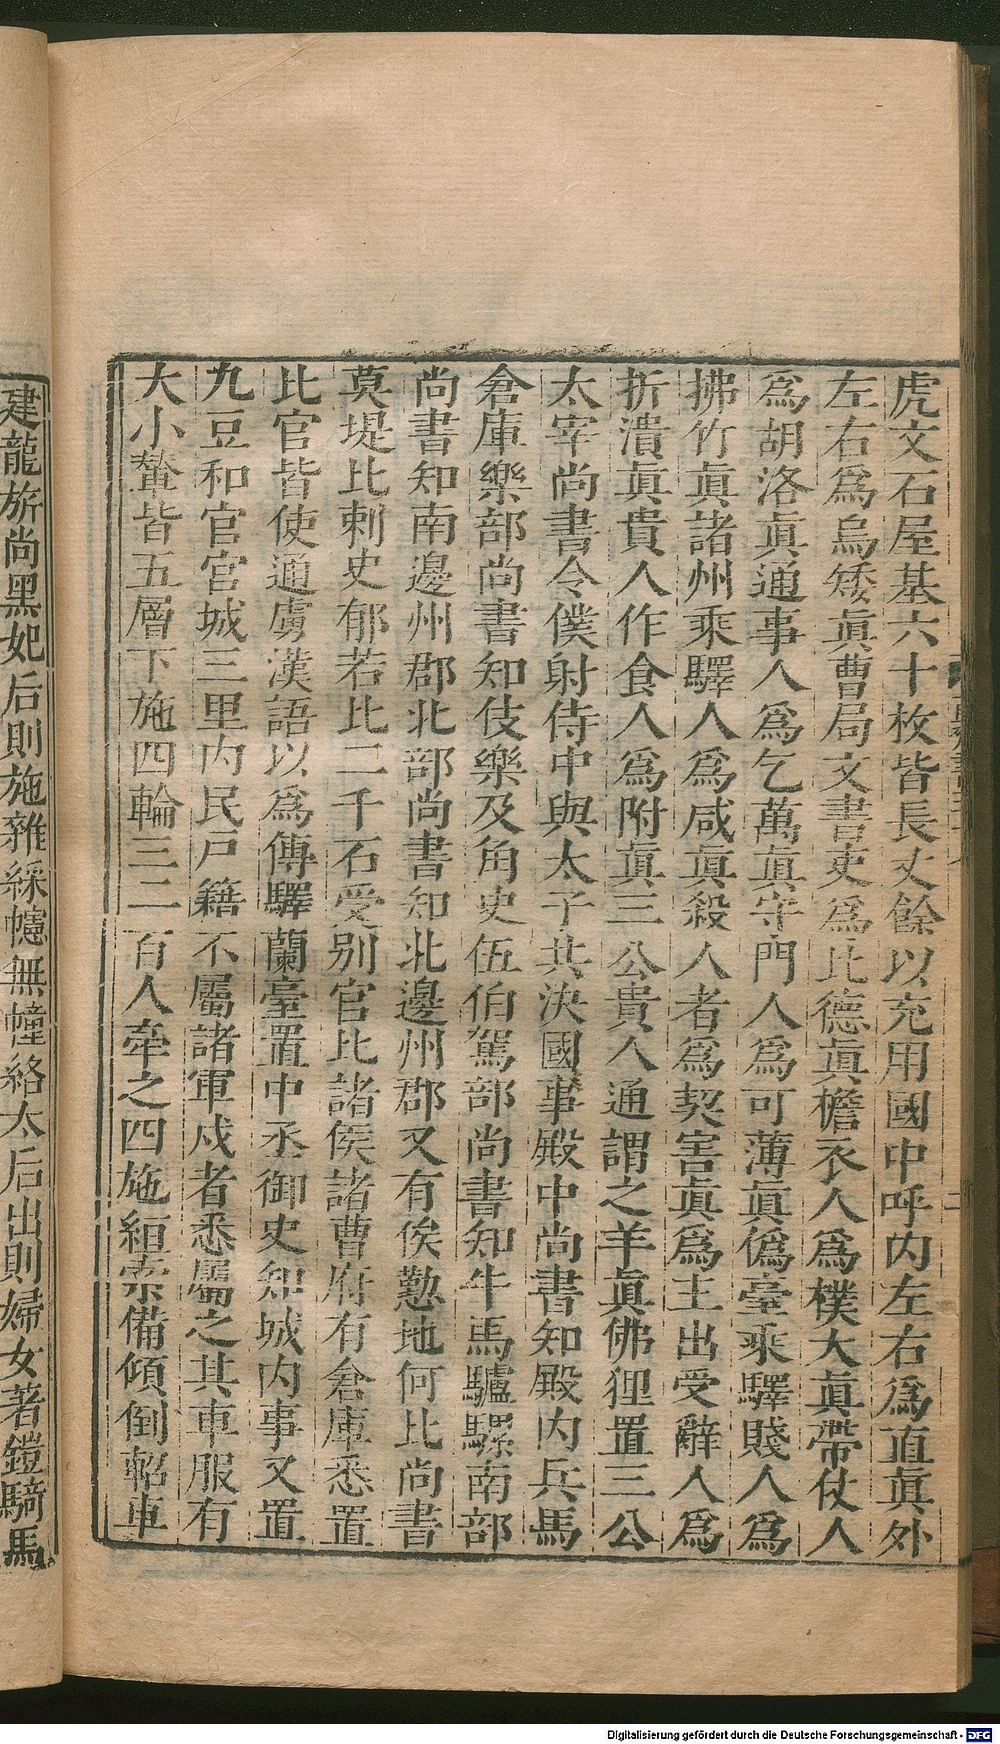 虎文石屋基六十枚皆長丈餘以充用國中呼內左右為直眞外
左右為烏矮眞曹局文書吏為比德眞檐衣人為樸大眞帶仗人
為胡洛眞通事人為乞萬眞守門人為可薄眞偽臺乘驛賤人為
拂竹眞諸州乘驛人為咸眞殺人者為契害眞為主出受辭人為
折潰眞貴人作食人為附眞三公貴人通謂之羊眞佛狸置三公
太宰尚書令僕射侍中與太子共決國事殿中尚書知殿內兵馬
倉庫樂部尚書知伎樂及角史伍伯駕部尚書知牛馬驢騾南部
尚書知南邊州郡北部尚書知北邊州郡又有俟懃地何比尚書
莫堤比刺史郁若比二千石受别官比諸侯諸曹府有倉庫悉置
比官皆使通虜漢語以為傳驛蘭臺置中丞御史知城內事又置
九豆和官宮城三里內民戶籍不屬諸軍戍者悉屬之其車服有
大小輦皆五層下施四輪三二百人牽之四施絙索備傾倒軺車
建龍旂尚黑妃后則施雜綵幰無幢絡太后出則婦女著鎧騎馬
Digitalisierung gefördert durch die Deutsche Forschungsgemeinschaft - DFG